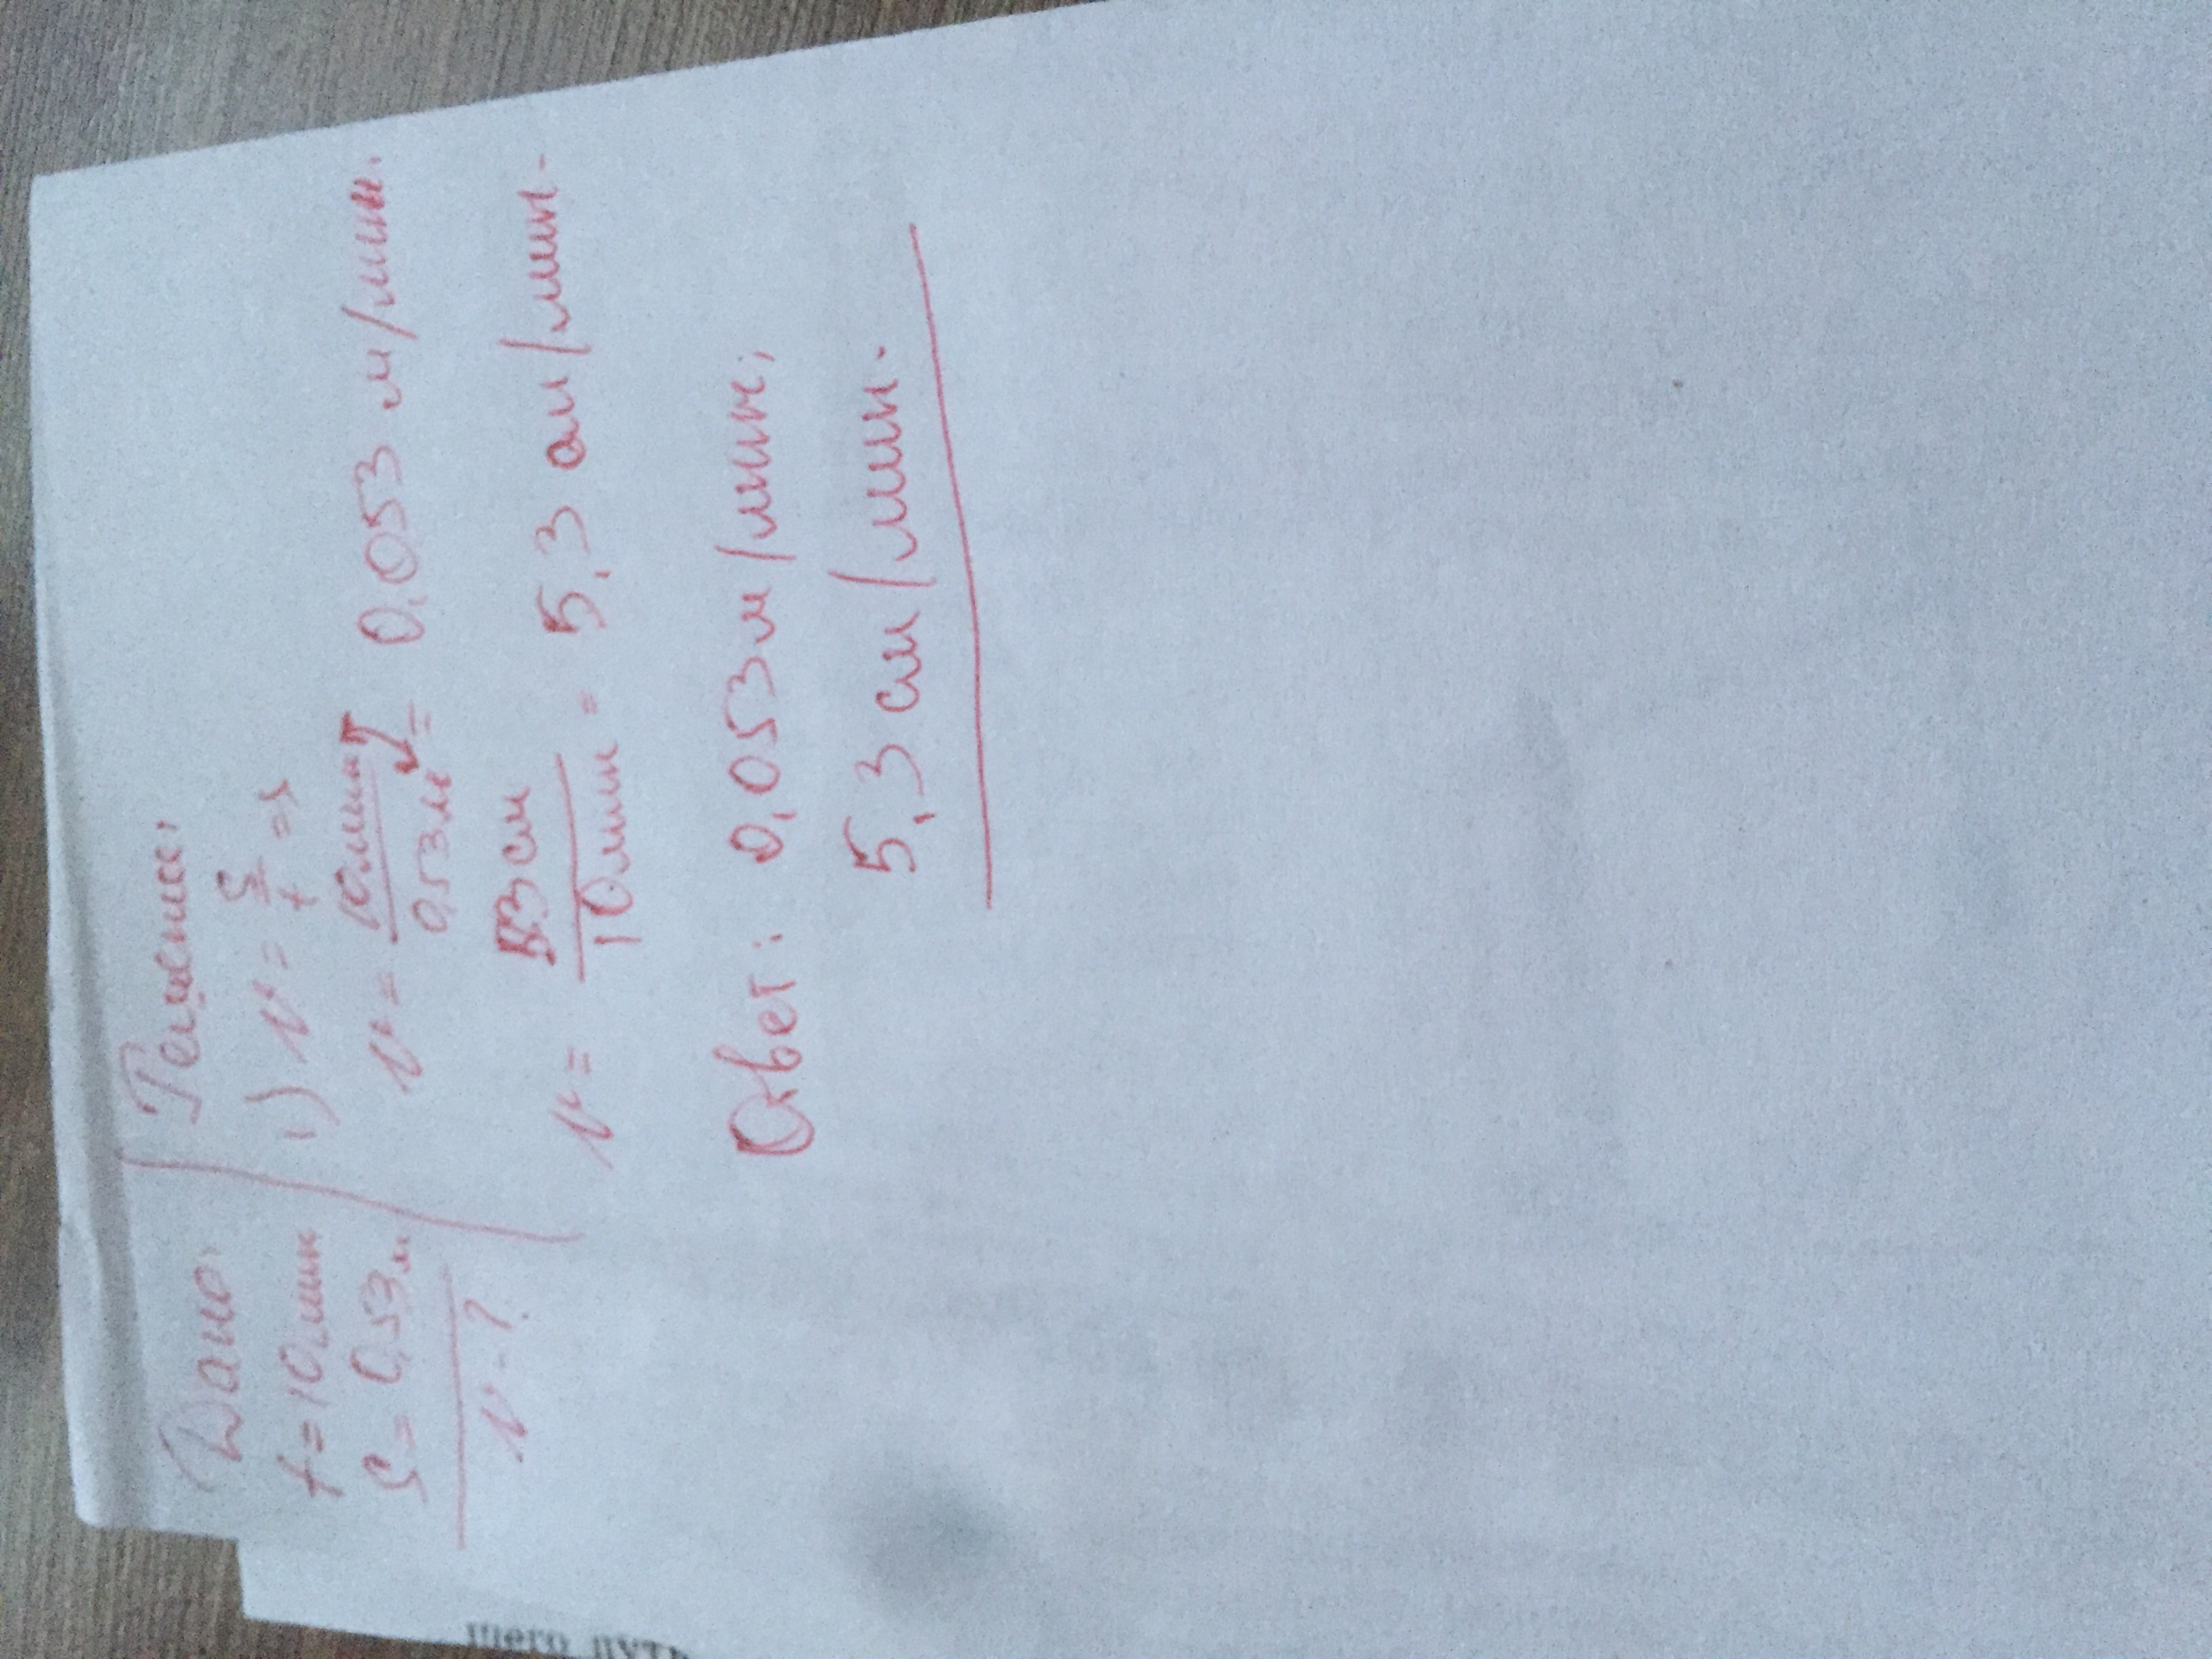 Дано:
t = 10 мин
S = 0,53 м
v - ?
Решение:
1) v = S/t =>
v = 10 мин/0,53 м = 0,053 м/мин.
v = 53 см/10 мин = 5,3 см/мин.
Ответ: 0,053 м/мин;
5,3 см/мин.
шего путь